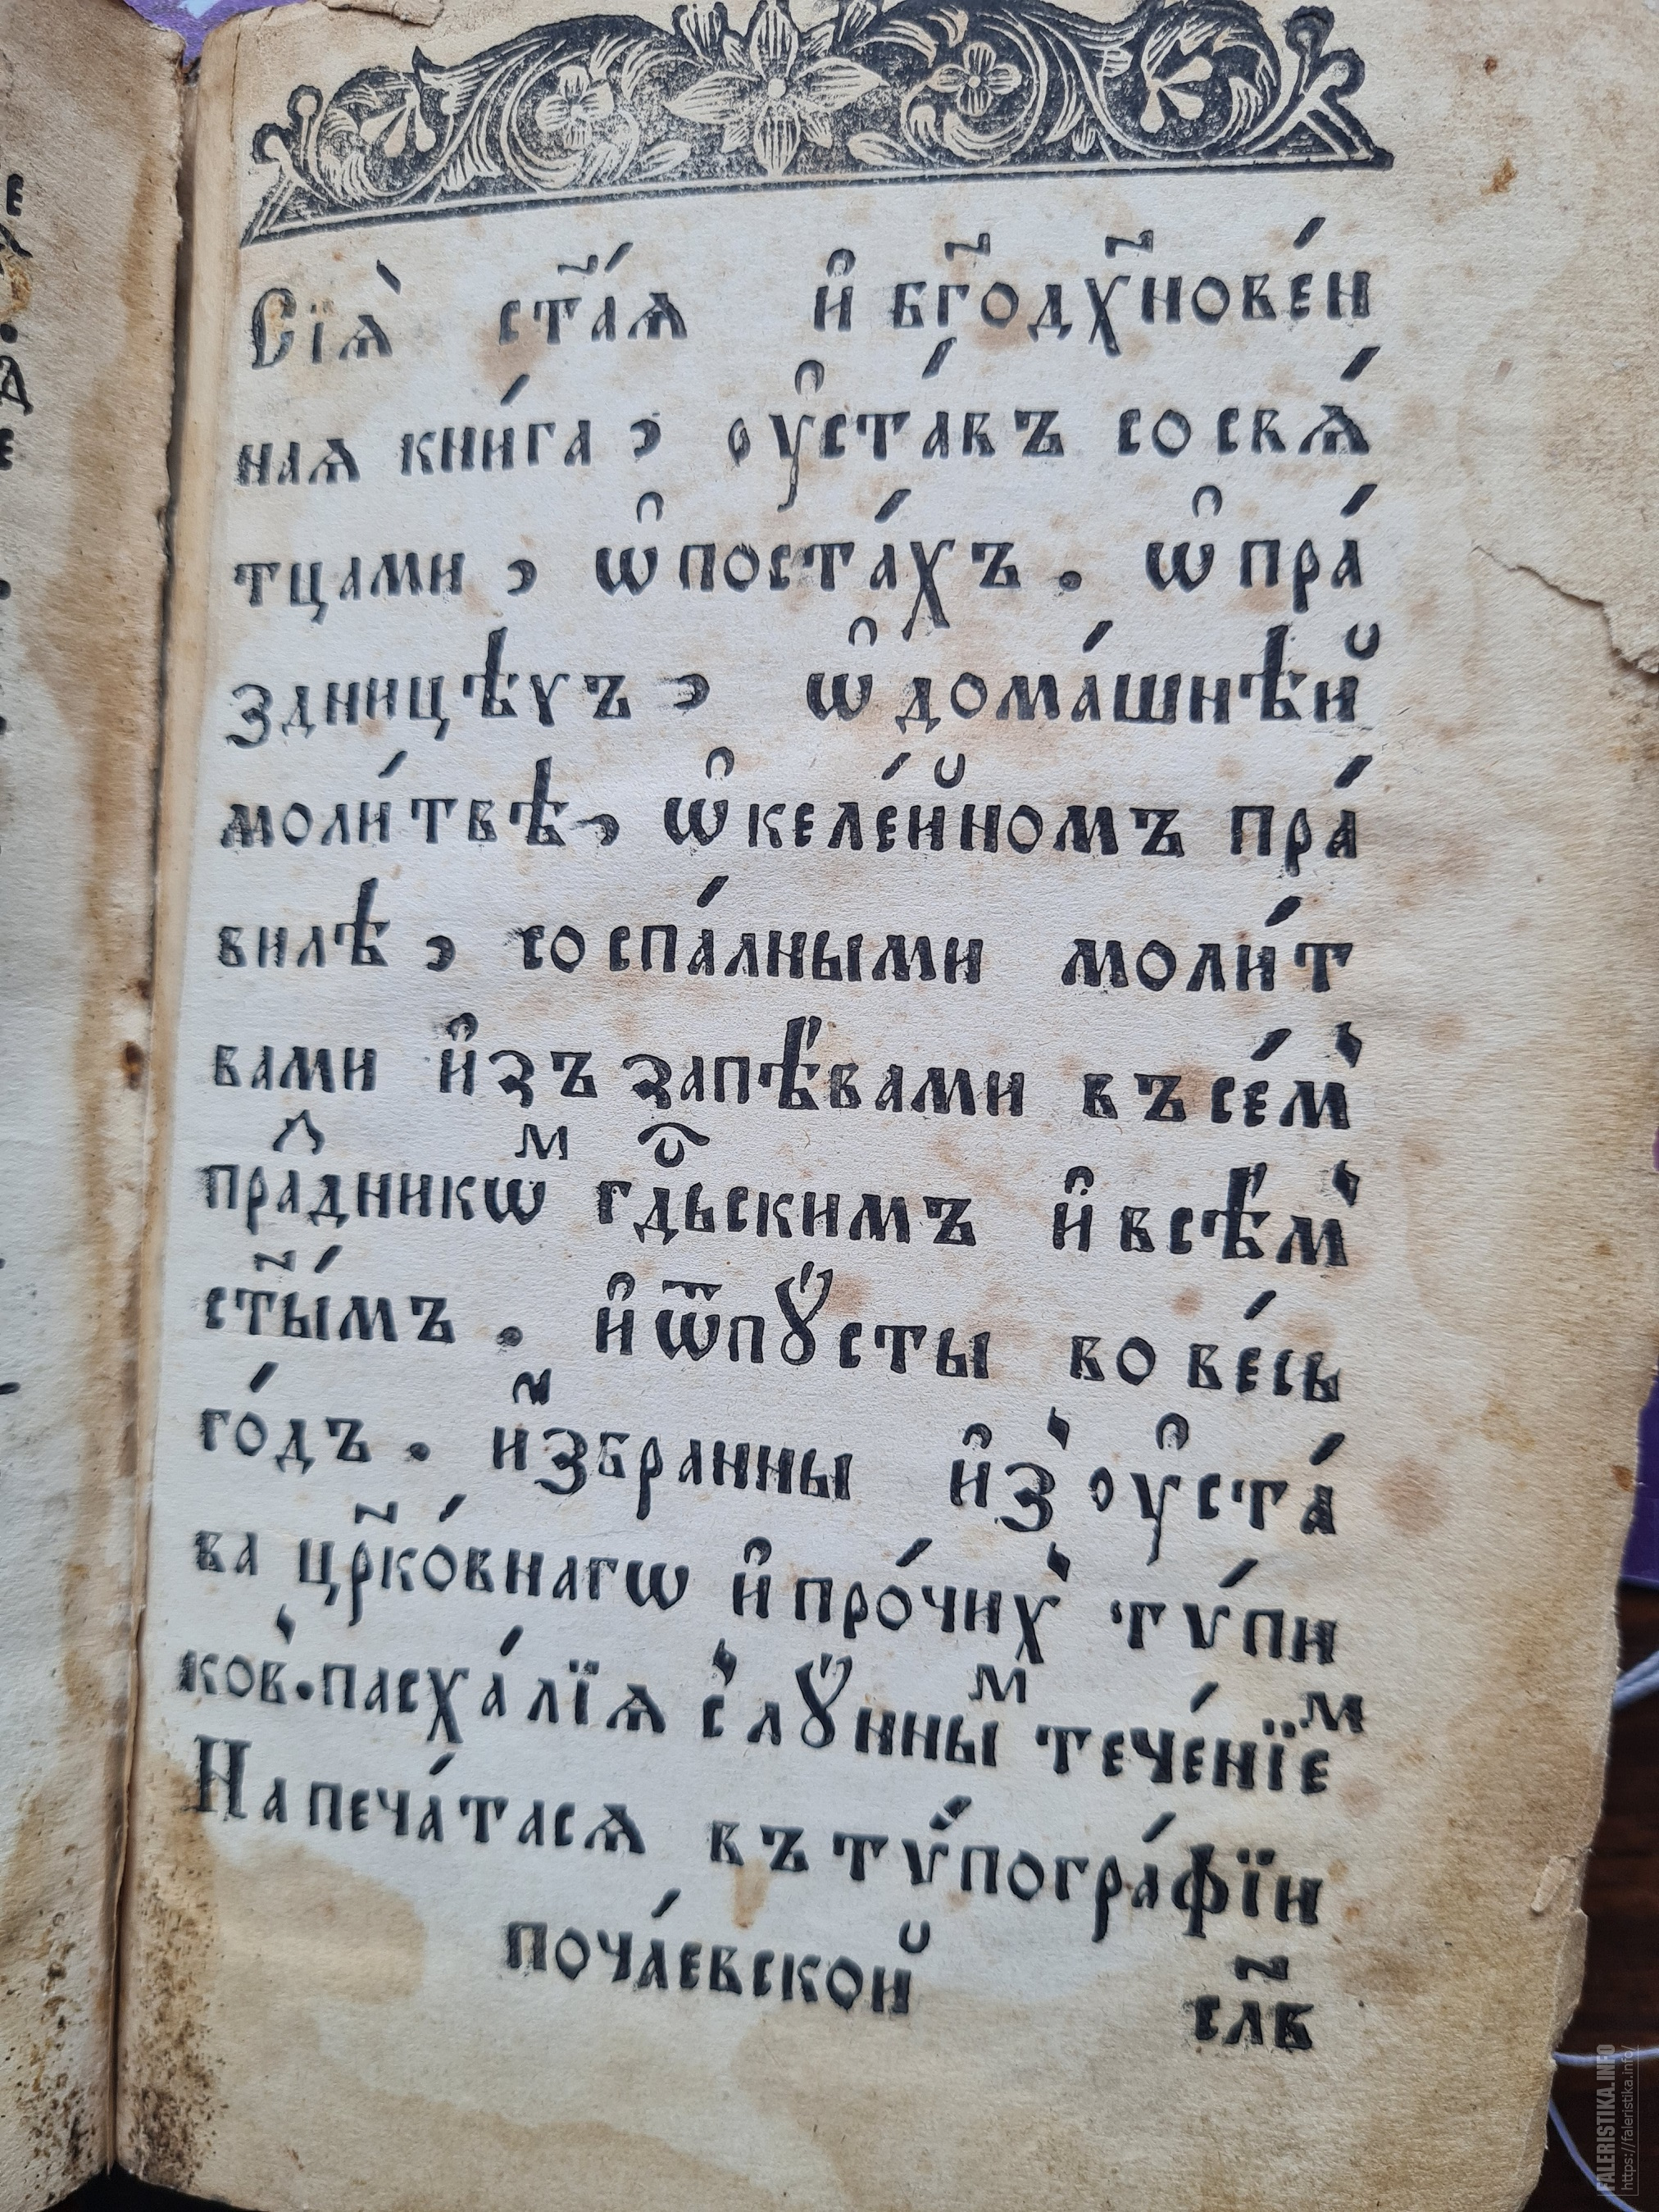 Сїѧ̀ ст҃а́ѧ и҆ бг҃одх҃новéн
наѧ кни́га, оу҆ста́въ со свѧ́
тцами, ѡ҆ поста́хъ. ѡ҆ пра́
здницѣхъ, ѡ҆ дома́шнѣй
моли́твѣ, ѡ҆ келе́йномъ пра́
вилѣ, со спа́лными моли́т
вами и҆ зъ запѣ́вами въ се́м̾
пра́ⷣзникѡⷨ гдⷭ҇ьскимъ и҆ всѣ́м̾
ст҃ы́мъ. и҆ ѿпꙋ́сты во ве́сь
го́дъ. и҆збранны и҆з̾ оу҆ста́
ва цр҃ко́внагѡ и҆ про́чих̾ тѵ́пи
ков̾. пасха́лїѧ с̾ лꙋ́нныⷨ тече́нїеⷨ
Напеча́тасѧ въ тѵ́погра́фїи
поча́евской
сл҃в
FALERISTIKA.INFO
https://faleristika.info/